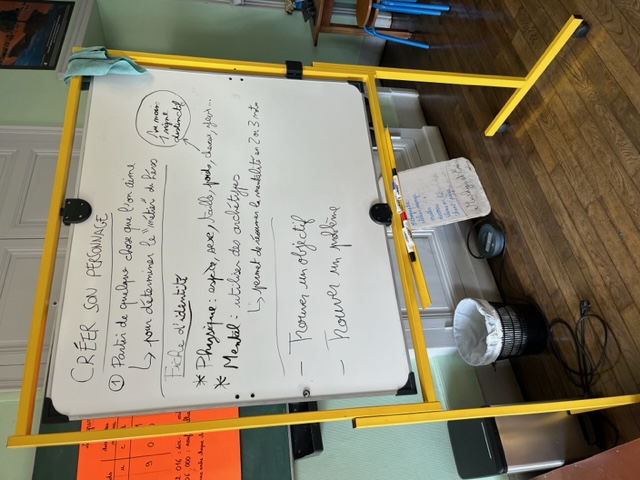 CRÉER SON PERSONNAGE
① Partir de quelque chose que l'on aime
↳ pour déterminer le "métier" du héros
Fiche d'identité
* Physique : espèce, sexe, taille, poids, cheveux, yeux...
Au moins
1 signe
distinctif
* Mental : utiliser des archétypes
↳ permet de résumer la mentalité en 2 ou 3 mots
- Trouver un objectif
- Trouver un problème